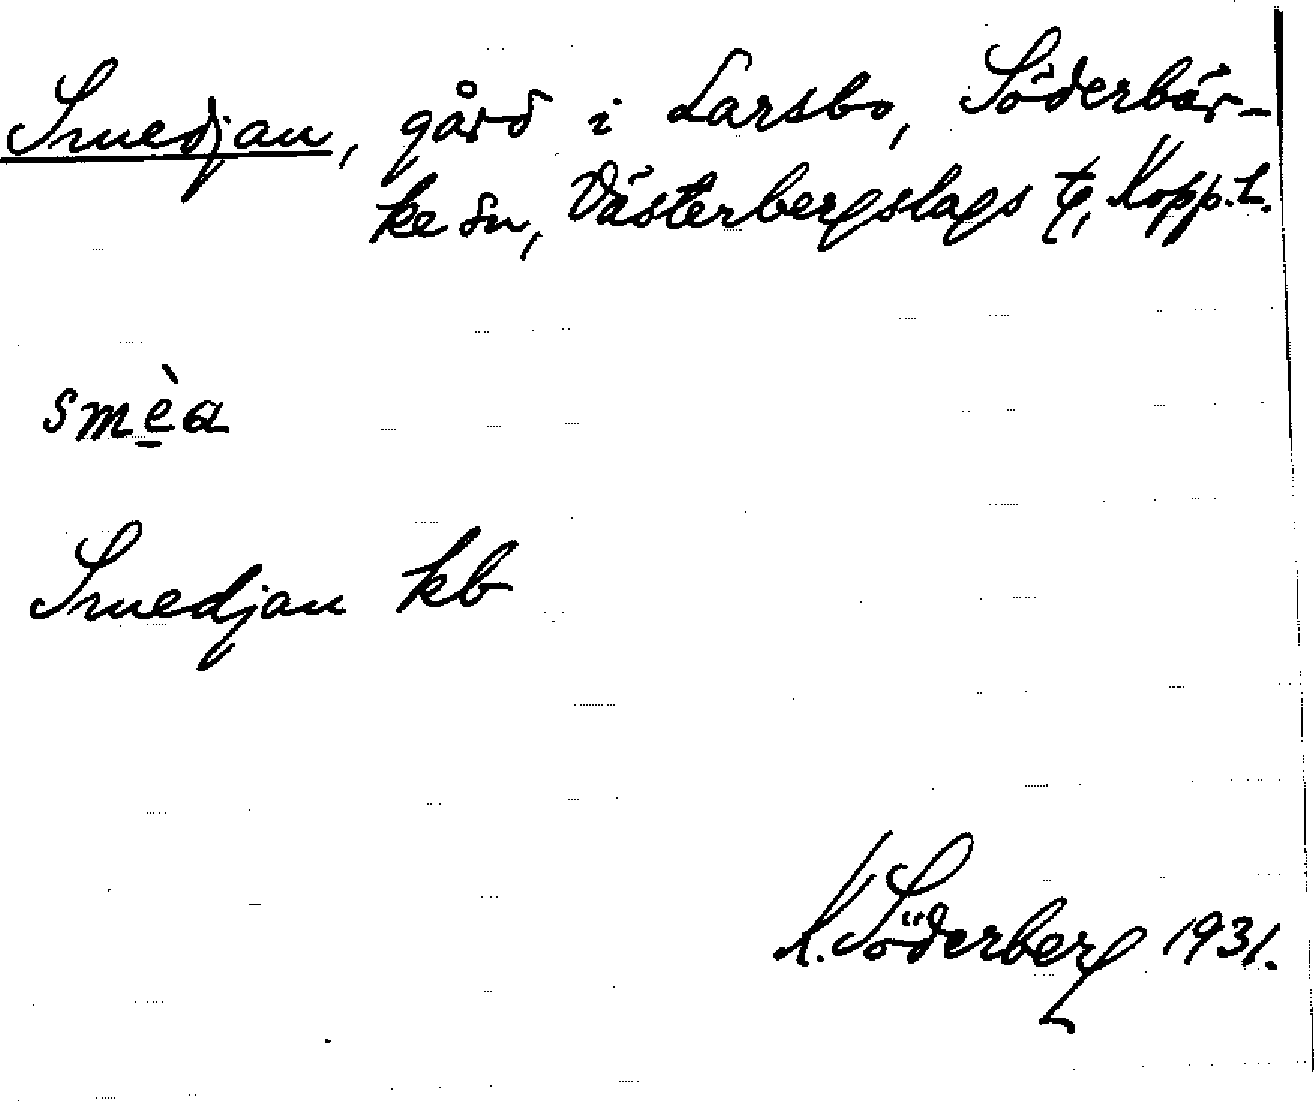 Smedjan, gård i Larsbo, Söderbär-
ke sn, Västerbergslags tg, Kopp. L.
smèa
Smedjan kb
K. Söderberg 1931.